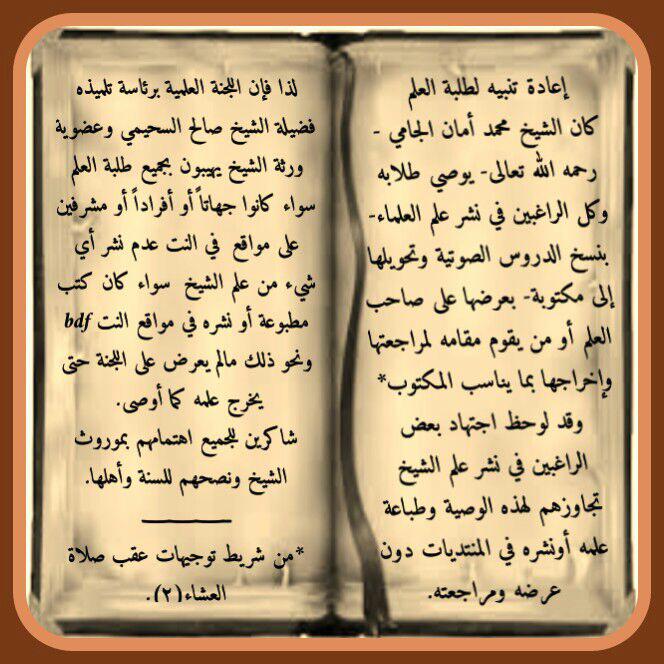 إعادة تنبيه لطلبة العلم
كان الشيخ محمد أمان الجامي -
رحمه الله تعالى- يوصي طلابه
وكل الراغبين في نشر علم العلماء-
بنسخ الدروس الصوتية وتحويلها
إلى مكتوبة- بعرضها على صاحب
العلم أو من يقوم مقامه لمراجعتها
وإخراجها بما يناسب المكتوب*
وقد لوحظ اجتهاد بعض
الراغبين في نشر علم الشيخ
تجاوزهم لهذه الوصية وطباعة
علمه أونشره في المنتديات دون
عرضه ومراجعته.
لذا فإن اللجنة العلمية برئاسة تلميذه
فضيلة الشيخ صالح السحيمي وعضوية
ورثة الشيخ يهيبون بجميع طلبة العلم
سواء كانوا جهاتاً أو أفراداً أو مشرفين
على مواقع في النت عدم نشر أي
شيء من علم الشيخ سواء كان كتب
مطبوعة أو نشره في مواقع النت bdf
ونحو ذلك مالم يعرض على اللجنة حتى
يخرج علمه كما أوصى.
شاكرين للجميع اهتمامهم بموروث
الشيخ ونصحهم للسنة وأهلها.
*من شريط توجيهات عقب صلاة
العشاء(٢).